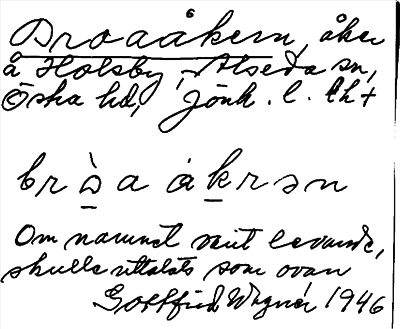 Broaåkern, åker
å Holsby, Alseda sn,
Östra hd, Jönk. l. Ch+
brò̱a åḵrən
Om namnet varit levande,
skulle uttalats som ovan
Gottfrid Wagnér 1946